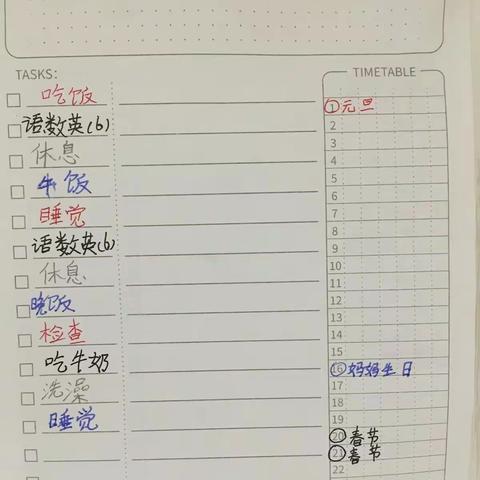 TASKS:
吃饭
语数英(6)
休息
牛饭
睡觉
语数英(6)
休息
晚饭
检查
吃牛奶
洗澡
睡觉
TIMETABLE
1 元旦
2
3
4
5
6
7
8
9
10
11
12
13
14
15
16 妈妈生日
17
18
19
20 春节
21 春节
22